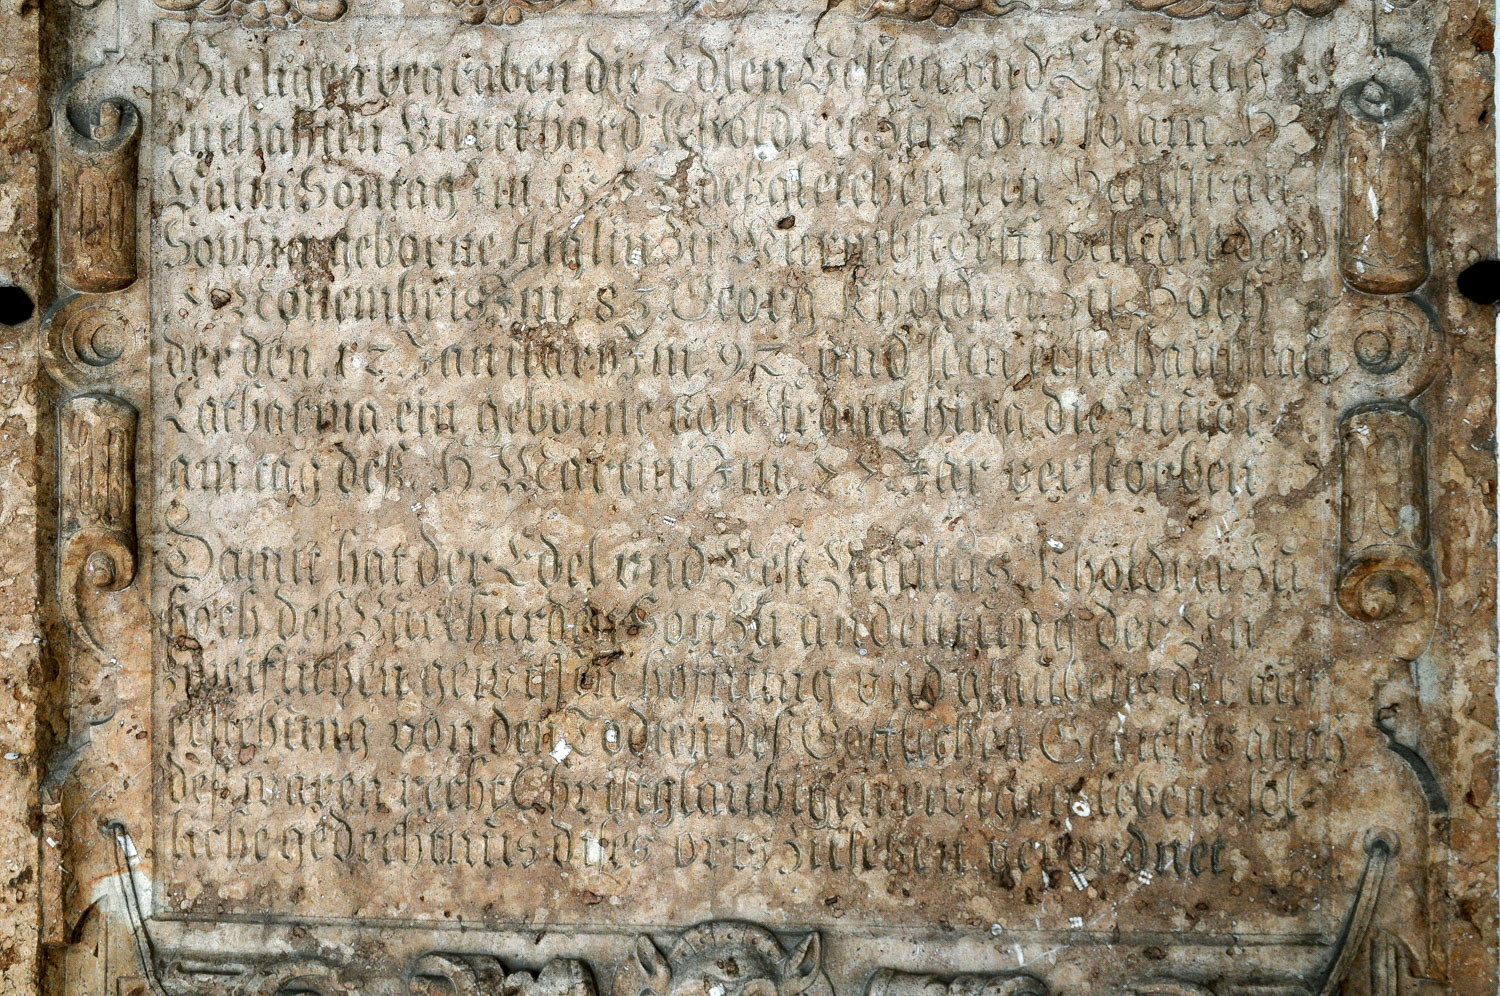 Hie ligen begraben die Edlen Vesten und Ehrntug
enthafften Burckhard Kholdrer zu Hoch so am H.
Palm Sontag Im 15 deßgleichen sein Haussfrau
Sophia geborne Aiglin zu welliche den
Nouembris Im. 83. Georg Kholdrer zu Hoch
der den 12. Januiary Im. 92. und sein erste haussfrau
Catharina ein geborne von Franckhing die zuuor
am tag deß. H. Martini Im. 77 Jar verstorben
Damit hat der Edel und Vest Paulus Kholdrer zu
hoch deß Burkhards Son zu andeutung der Un
zweiflichen gewissn hoffnung und glaubens der auf
erstehung von den Todten deß Gottlichen Gerichts auch
deß waren recht Christglaubigen ewigen lebens sol-
liche gedechtnus dies orts zusetzen geordnet